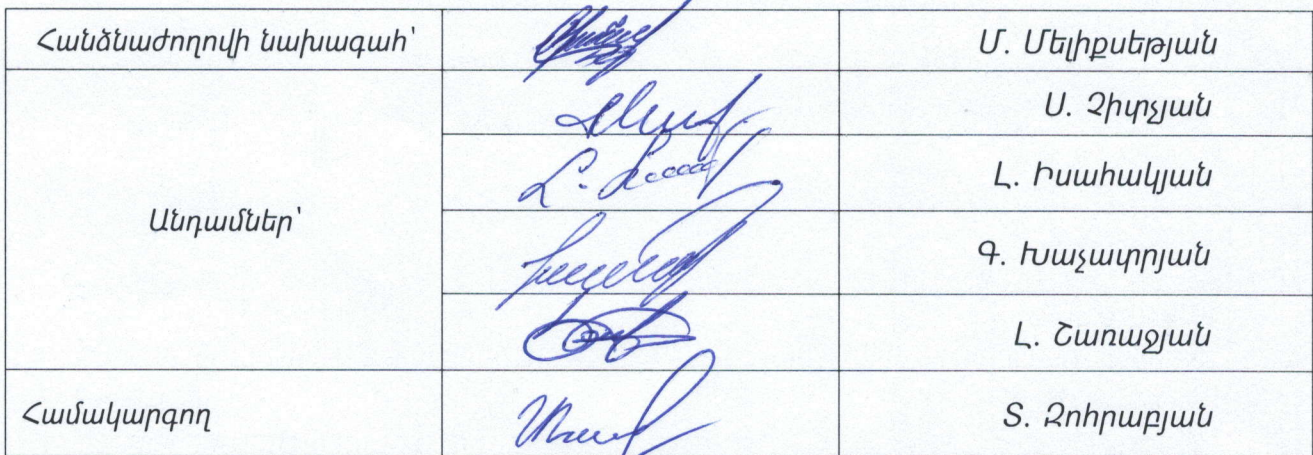 Հանձնաժողովի նախագահ՝ Մ. Մելիքսեթյան
Անդամներ՝
Ս. Չիտչյան
Լ. Իսահակյան
Գ. Խաչատրյան
Լ. Շառաջյան
Համակարգող Տ. Զոհրաբյան